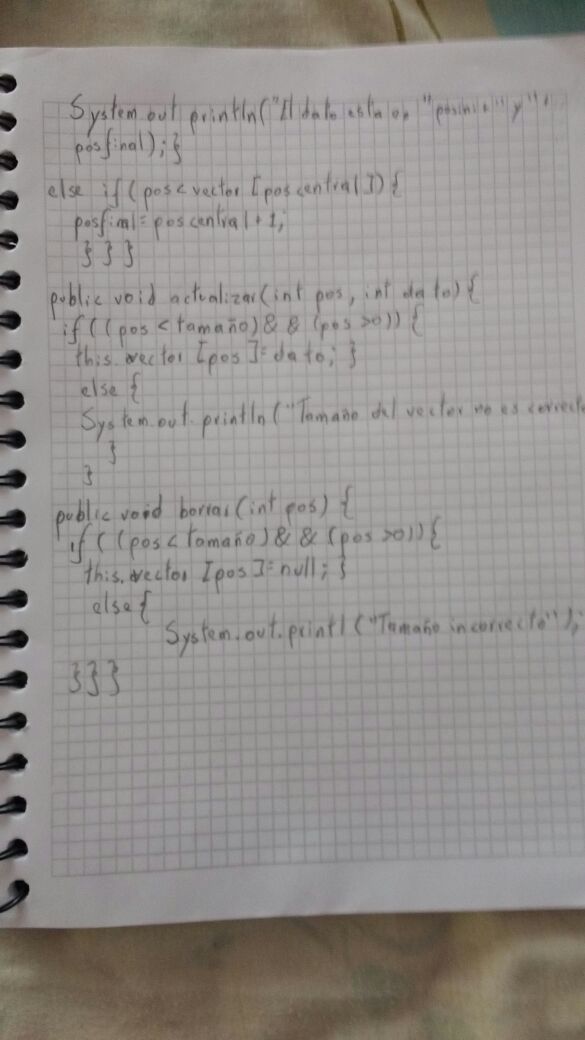 System.out.println("El dato esta en "posinic" y"+
posfinal);}
else if(pos<vector [poscentral]){
posfinal=poscentral+1;
}}}
public void actualizar(int pos, int dato){
if((pos<tamaño)&&(pos>0)){
this.vector [pos]=dato;}
else{
System.out.println("Tamaño del vector no es correcto
}
}
public void borrar(int pos){
if((pos<tamaño)&&(pos>0)){
this.vector [pos]=null;}
else{
System.out.printl("Tamaño incorrecto");
}}}